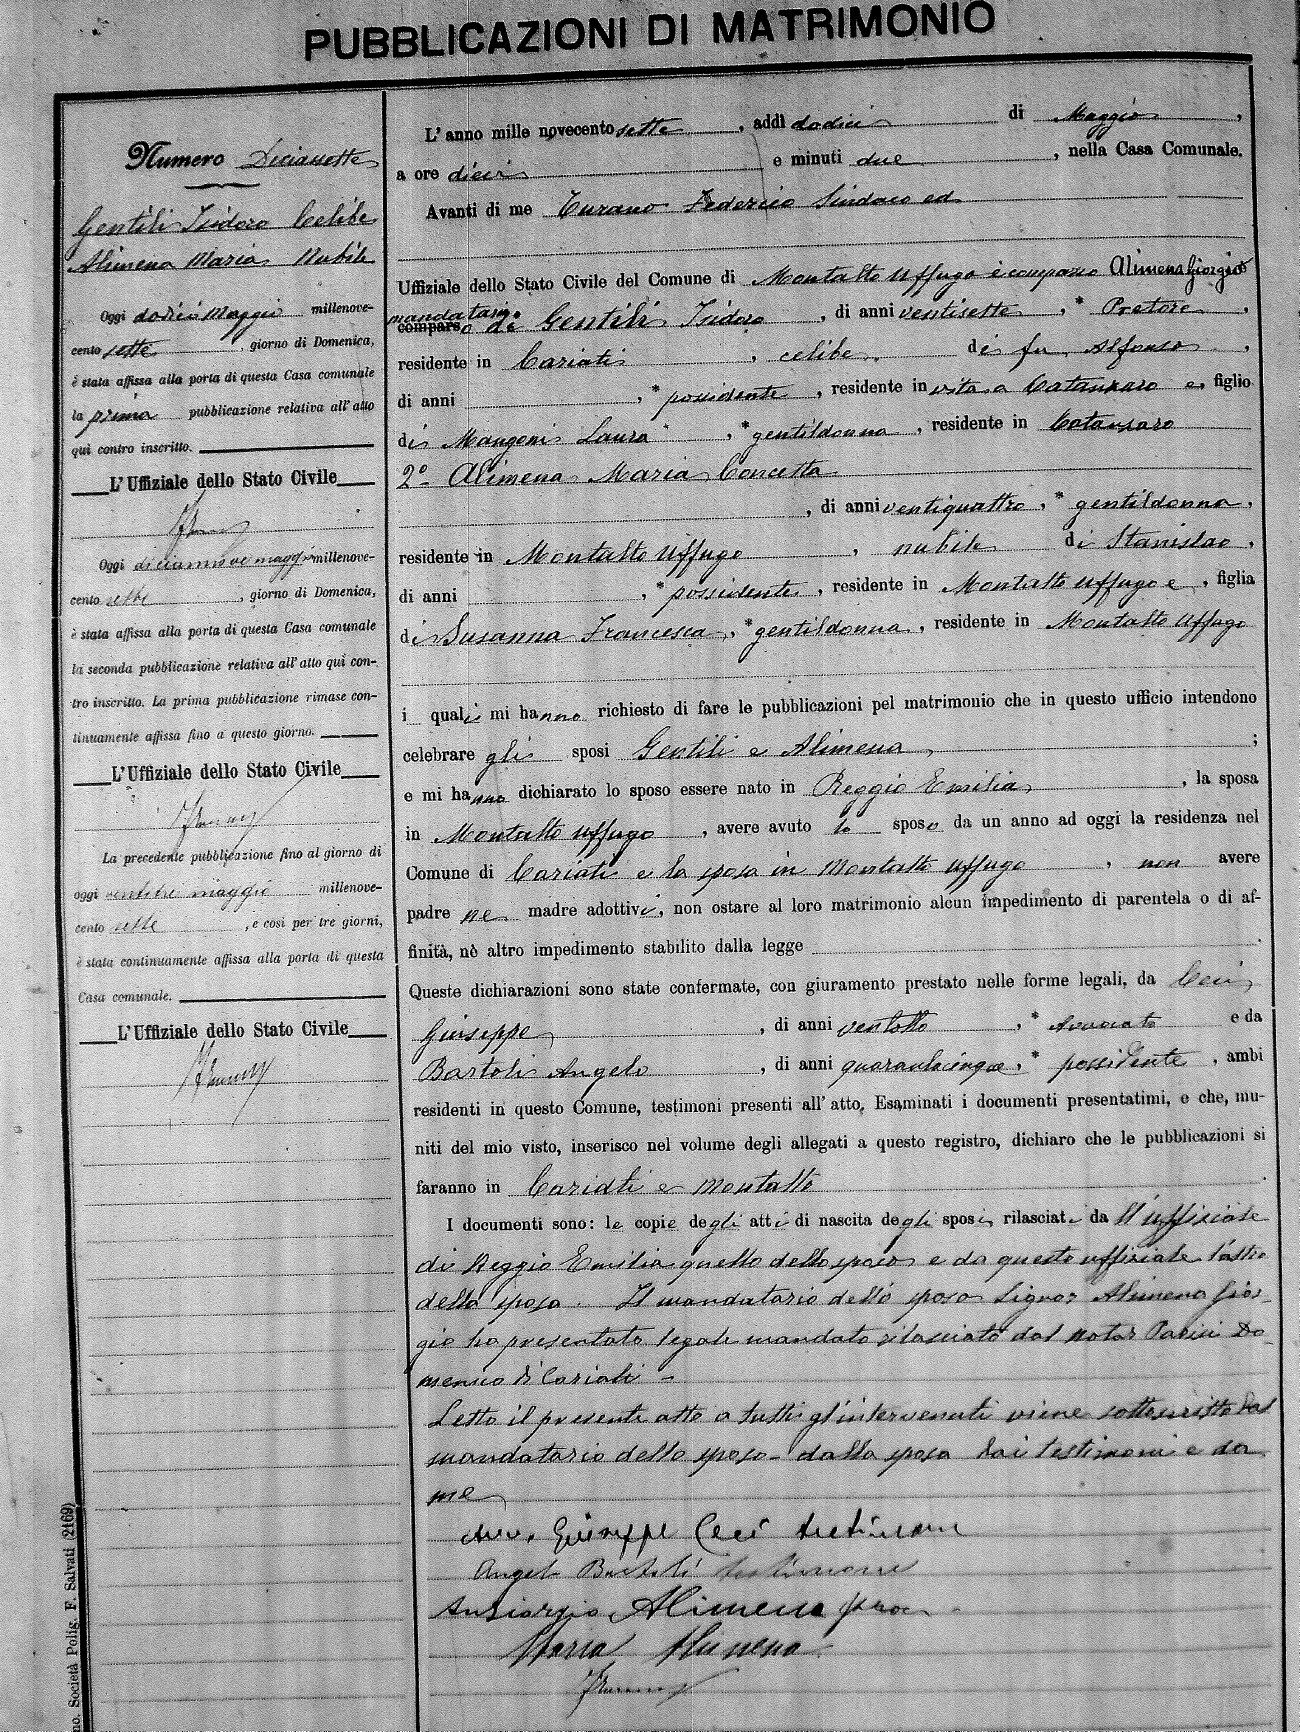 PUBBLICAZIONI DI MATRIMONIO
Numero Diciassette
Gentili Isidoro Celibe
Alimena Maria Nubile
Oggi dodici Maggio millenove-
cento sette, giorno di Domenica,
è stata affissa alla porta di questa Casa comunale
la prima pubblicazione relativa all'atto
qui contro inscritto.
L'Uffiziale dello Stato Civile
Oggi diciannove maggio millenove-
cento sette, giorno di Domenica,
è stata affissa alla porta di questa Casa comunale
la seconda pubblicazione relativa all'atto qui con-
tro inscritto. La prima pubblicazione rimase con-
tinuamente affissa fino a questo giorno.
L'Uffiziale dello Stato Civile
La precedente pubblicazione fino al giorno di
oggi ventidue maggio millenove-
cento sette, e così per tre giorni,
è stata continuamente affissa alla porta di questa
Casa comunale.
L'Uffiziale dello Stato Civile
L'anno mille novecento sette, addì dodici di Maggio,
a ore dieci e minuti due, nella Casa Comunale.
Avanti di me Turano Federico Sindaco ed
Uffiziale dello Stato Civile del Comune di Montalto Uffugo è comparso Alimena Giorgio
mandatario
comparso di Gentili Isidoro, di anni ventisette, * Pretore,
residente in Cariati, celibe, di fu Alfonso,
di anni , * possidente, residente in vita a Catanzaro e, figlio
di Mangoni Laura, * gentildonna, residente in Catanzaro
2° Alimena Maria Concetta
, di anni ventiquattro, * gentildonna,
residente in Montalto Uffugo, nubile di Stanislao,
di anni , * possidente, residente in Montalto Uffugo e, figlia
di Susanna Francesca, * gentildonna, residente in Montalto Uffugo
i quali mi hanno richiesto di fare le pubblicazioni pel matrimonio che in questo ufficio intendono
celebrare gli sposi Gentili e Alimena;
e mi hanno dichiarato lo sposo essere nato in Reggio Emilia, la sposa
in Montalto Uffugo, avere avuto lo sposo da un anno ad oggi la residenza nel
Comune di Cariati e la sposa in Montalto Uffugo, non avere
padre ne madre adottivi, non ostare al loro matrimonio alcun impedimento di parentela o di af-
finità, nè altro impedimento stabilito dalla legge.
Queste dichiarazioni sono state confermate, con giuramento prestato nelle forme legali, da Ceci
Giuseppe, di anni ventotto, * Avvocato e da
Bartoli Angelo, di anni quarantacinque, * possidente, ambi
residenti in questo Comune, testimoni presenti all'atto. Esaminati i documenti presentatimi, e che, mu-
niti del mio visto, inserisco nel volume degli allegati a questo registro, dichiaro che le pubblicazioni si
faranno in Cariati e Montalto.
I documenti sono: le copie degli atti di nascita degli sposi, rilasciati da ll'uffiziale
di Reggio Emilia quello dello sposo e da questo uffiziale l'atto
della sposa. Il mandatario dello sposo Signor Alimena Gior-
gio ha presentato legale mandato rilasciato dal notar Parisi Do-
menico di Cariati -
Letto il presente atto a tutti gl'intervenuti viene sottoscritto dal
mandatario dello sposo - dalla sposa dai testimoni e da
me
Avv. Giuseppe Ceci testimone
Angelo Bartoli testimone
Giorgio Alimena proc
Maria Alimena
no. Società Polig. F. Salvati (2169)